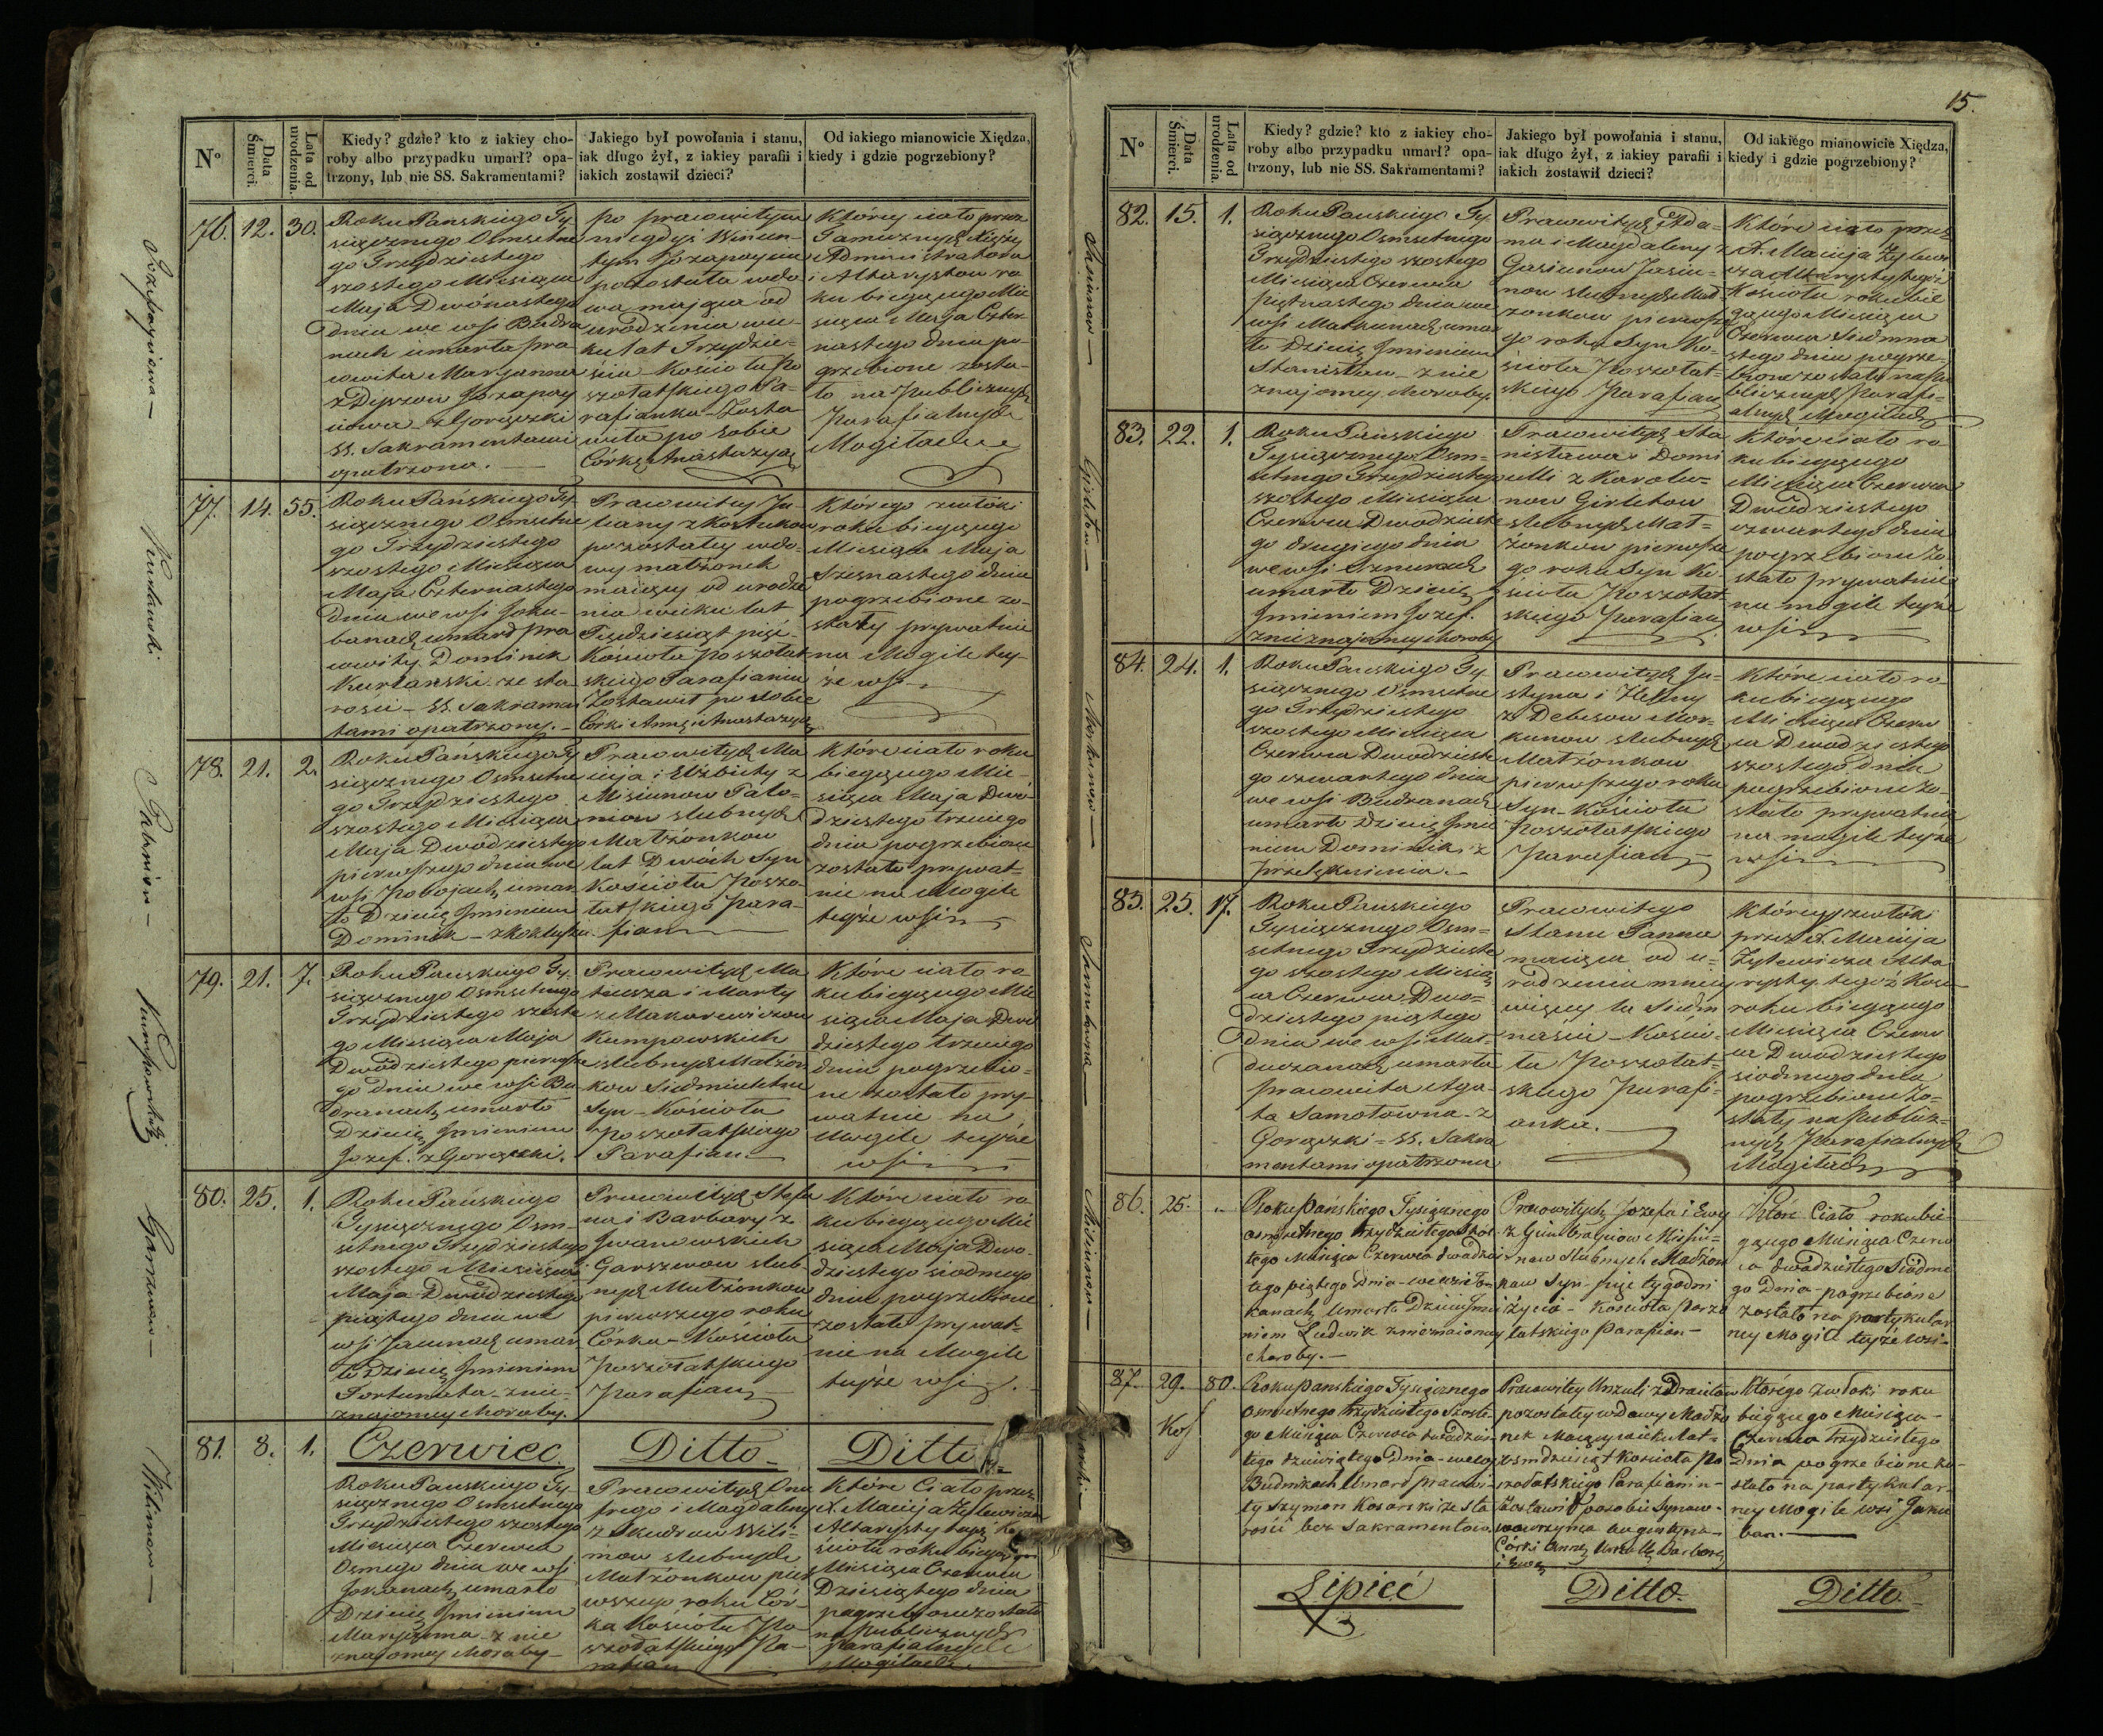 Nº
Data Śmierci.
Lata od urodzenia.
Kiedy? gdzie? kto z iakiey cho-
roby albo przypadku umarł? opa-
trzony, lub nie SS. Sakramentami?
Jakiego był powołania i stanu,
iak długo żył, z iakiey parafii i
iakich zostawił dzieci?
Od iakiego mianowicie Xiędza,
kiedy i gdzie pogrzebiony?
76. 12. 30.
Roku Pańskiego Ty-
siącznego Osmsetne
go Trzydziestego
szostego Miesiąca
Maja Dwónastego
dnia we wsi Budra
nach umarła pra
cowita Maryanna
SS. Sakramentami
opatrzona.
po pracowitym
niegdyś Wincen-
tym
pozostała wdo
wa mająca od
urodzenia wie-
ku lat Trzydzie-
ści Kościoła Po
szołatskiego Pa-
rafianka Zosta
wiła po sobie
Córkę Anastazyą
Którey ciało przez
Administratora
i Altarystow ro
ku biegącego Mie
siąca Maja Czter
nastego dnia po-
grzebione zosta-
ło na Publicznych
Parafialnych
Mogiłach
77. 14. 55.
Roku Pańskiego Ty-
siącznego Osmsetne
go Trzydziestego
szostego Miesiąca
Maja Czternastego
Dnia we wsi Jaku-
banach umarł pra
cowity Dominik
ze sta
rości SS. Sakramen
tami opatrzony.
Pracowitey Ju-
lianny z
pozostałey wdo-
wy małżonek
maiący od urodze
nia wieku lat
Pięćdziesiąt pięć
Kościoła Poszołat
skiego Parafianin
Zostawił po sobie
Córki Annę i Anastazyą
Którego zwłoki
roku biegącego
Miesiąca Maja
Szesnastego dnia
pogrzebione zo-
stały prywatnie
na Mogile tey-
że wsi
78. 21. 2.
Roku Pańskiego Ty
siącznego Osmsetne
go Trzydziestego
szostego Miesiąca
Maja Dwódziestego
pierwszego dnia we
wsi Pobojach umar
ło Dziecię Imieniem
Dominik z Kokluszu
Pracowitych Ma
cieja i Elżbiety z
Misiunow Pato-
niow slubnych
Małżonkow
lat Dwóch Syn
Kościoła Poszo-
łatskiego Para-
fian
Które ciało roku
biegącego Mie-
siąca Maja Dwó
dziestego trzeciego
dnia pogrzebione
zostało prywat-
nie na Mogile
teyże wsi
79. 21. 7.
Roku Pańskiego Ty-
siącznego Osmsetnego
Trzydziestego szoste
go Miesiąca Maja
Dwódziestego pierwsze
go dnia we wsi Bu-
dranach umarło
Dziecię Imieniem
Jozef z Gorączki.
Pracowitych Ma
teusza i Marty
z Makarewiczow
Kumpowskich
slubnych Małżon
kow Siedmioletni
Syn Kościoła
Poszołatskiego
Parafian.
Które ciało ro
ku biegącego Mie
siąca Maja Dwó
dziestego trzeciego
dnia pogrzebio-
ne zostało pry-
watnie na
Mogile teyże
wsi
80. 25. 1.
Roku Pańskiego
Tysiącznego Osm-
setnego Trzydziestego
szostego Miesiąca
Maja Dwódziestego
piątego dnia we
wsi Jacunach umar
ło Dziecię Imieniem
Fortunata z nie-
znajomey choroby.
Pracowitych Stefa
na i Barbary z
Iwanowskich
Garszwow slub-
nych Małżonkow
pierwszego roku
Córka Kościoła
Poszołatskiego
Parafian
Które ciało ro
ku biegącego Mie
siąca Maja Dwo-
dziestego siodmego
dnia pogrzebione
zostało prywat-
nie na Mogile
teyże wsi
81. 8. 1.
Czerwiec
Ditto
Ditto
Roku Pańskiego Ty-
siącznego Osmsetnego
Trzydziestego szostego
Miesiąca Czerwca
Osmego dnia we wsi
umarło
Dziecię Imieniem
Maryanna z nie
znajomey choroby
Pracowitych Onu
frego i Magdaleny
z Skudrow Wili-
mow slubnych
Małżonkow pier
wszego roku Cór-
ka Kościoła Po
szołatskiego Pa-
rafian
Które Ciało przez
X. Macieja Żylewicza
Altarystę tegoż Ko
ścioła roku biegącego
Miesiąca Czerwca
Dziesiątego dnia
pogrzebione zostało
na Publicznych
Parafialnych
Mogiłach.
Patoniow
Kumpowski
Garszwow
Wilimow
15.
Nº
Data Śmierci.
Lata od urodzenia.
Kiedy? gdzie? kto z iakiey cho-
roby albo przypadku umarł? opa-
trzony, lub nie SS. Sakramentami?
Jakiego był powołania i stanu,
iak długo żył, z iakiey parafii i
iakich zostawił dzieci?
Od iakiego mianowicie Xiędza,
kiedy i gdzie pogrzebiony?
82. 15. 1.
Roku Pańskiego Ty-
siącznego Osmsetnego
Trzydziestego szostego
Miesiąca Czerwca
Piętnastego dnia we
wsi Matkunach umar
ło Dziecię Imieniem
Stanisław z nie
znajomey choroby.
Pracowitych Ada-
ma i Magdaleny z
Gasiunow Jasiu-
now slubnych Mał
żonkow pierwsze
go roku Syn Ko-
ścioła Poszołat-
skiego Parafian
Które ciało przez
X. Macieja Żylewi
cza Altarystę tegoż
Kościoła roku bie
gącego Miesiąca
Czerwca Siedmna
stego dnia pogrze-
bione zostało na Pu
blicznych Parafi-
alnych Mogiłach
83. 22. 1.
Roku Pańskiego
Tysiącznego Osm-
setnego Trzydziestego
szostego Miesiąca
Czerwca Dwodzieste
go drugiego dnia
we wsi
umarło Dziecię
Imieniem Jozef
z nieznajomey choroby
Pracowitych Sta
nisława i Domi
celli z Karolu-
now Girletow
slubnych Mał-
żonkow pierwsze
go roku Syn Ko
ścioła Poszołat
skiego Parafian
Które ciało ro
ku biegącego
Miesiąca Czerwca
Dwódziestego
czwartego dnia
pogrzebione zo-
stało prywatnie
na mogile teyże
wsi
84. 24. 1.
Roku Pańskiego Ty-
siącznego Osmsetne
go Trzydziestego
szostego Miesiąca
Czerwca Dwodzieste
go czwartego dnia
we wsi Budranach
umarło Dziecię Imie
niem Dominik z
przelęknienia.
Pracowitych Ju-
styna i Heleny
z Debesow Mor-
kunow slubnych
Małżonkow
pierwszego roku
Syn Kościoła
Poszołatskiego
Parafian
Które ciało ro-
ku biegącego
Miesiąca Czerw
ca Dwodziestego
szostego dnia
pogrzebione zo-
stało prywatnie
na mogile teyże
wsi
85. 25. 17.
Roku Pańskiego
Tysiącznego Osm-
setnego Trzydzieste
go szostego Miesią
ca Czerwca Dwo-
dziestego piątego
dnia we wsi
umarła
pracowita Aga-
ta Samotowna z
Gorączki SS. Sakra
mentami opatrzona
Pracowitego
Stanu Panna
maiąca od u-
rodzenia mniey
więcey la Siedm
naście Kościo-
ła Poszołat-
skiego Parafi-
anka.
Którey zwłoki
przez X. Macieja
Żylewicza Alta
rystę tegoż Kości
roku biegącego
Miesiąca Czerw
ca Dwodziestego
siodmego dnia
pogrzebione zo-
stały na Publicz-
nych Parafialnych
Mogiłach
86. 25. "
Roku Pańskiego Tysiącznego
osmsetnego trzydziestego szos-
tego Miesiąca Czerwca dwadzies
tego piątego Dnia we wsi
umarło Dziecię Imie
niem Ludwik z nieznaiomey
choroby.
Pracowitych Jozefa i Ewy
z Misiu-
now Slubnych Małżon
kow Syn pięć tygodni
Życia Kościoła Posza
łatskiego Parafian
Które Ciało roku bie-
gącego Miesiąca Czerw
ca dwadziestego Siodme
go Dnia pogrzebione
zostało na partykular
ney Mogile teyże wsi
87. 29. 80.
Roku Pańskiego Tysiącznego
Osmsetnego trzydziestego Szoste
go Miesiąca Czerwca dwadzies-
tego dziewiątego Dnia we wsi
Budrikach umarł pracowi-
ty Szymon Kosarski ze sta
rości bez Sakramentow
Pracowitey Urszuli z
pozostałey wdowy Małżo
nek Maiący wieku lat
osmdziesiąt Kościoła Po
szołatskiego Parafianin
Zostawił po sobie Synow
Wawrzyńca Augustyna
Córki Annę Urszulę Barbarę
i Ewę
Którego Zwłoki roku
biegącego Miesiąca
Czerwca trzydziestego
Dnia pogrzebione zo-
stało na partykular-
ney Mogile wsi Jaku
ban.
Lipiec
Ditto
Ditto
Jasiunow
Girletow
Morkunow
Samotowna
Misiunow